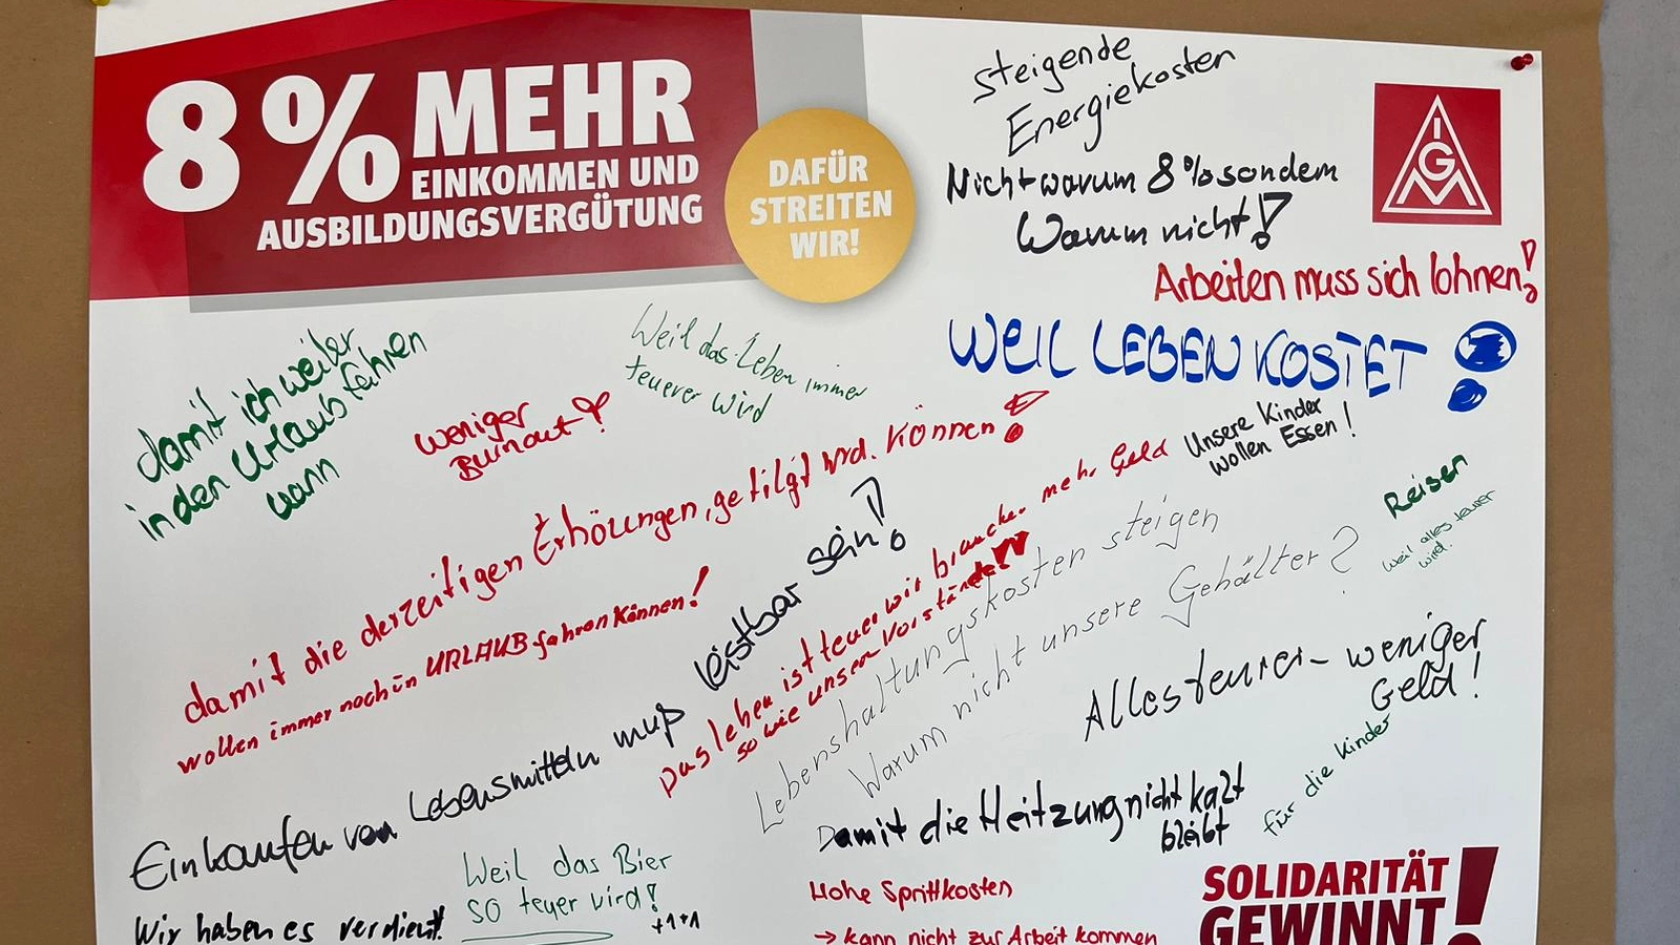 8% MEHR
EINKOMMEN UND
AUSBILDUNGSVERGÜTUNG
DAFÜR
STREITEN
WIR!
steigende
Energiekosten
Nicht warum 8% sondern
Warum nicht!
IGM
Arbeiten muss sich lohnen!
WEIL LEBEN KOSTET!
damit ich weiter
in den Urlaub fahren
wann
weniger
Burnout!
Weil das Leben immer
teuerer wird
damit die derzeitigen Erhöungen, getilgt wrd. können!
wollen immer noch in URLAUB fahren können!
Einkaufen von Lebensmitteln muß leistbar sein!
Das leben ist teuer wir brauche. mehr Geld
so wie unser Vorstände!
Unsere Kinder
wollen Essen!
Lebenshaltungskosten steigen
Warum nicht unsere Gehälter?
Reisen
weil alles teurer
wird.
Alles teurer - weniger
Geld!
Damit die Heitzung nicht kalt
bleibt
für die Kinder
Weil das Bier
so teuer wird!
+1+1
Wir haben es verdient!
Hohe Spritkosten
→ kann nicht zur Arbeit kommen
SOLIDARITÄT
GEWINNT!